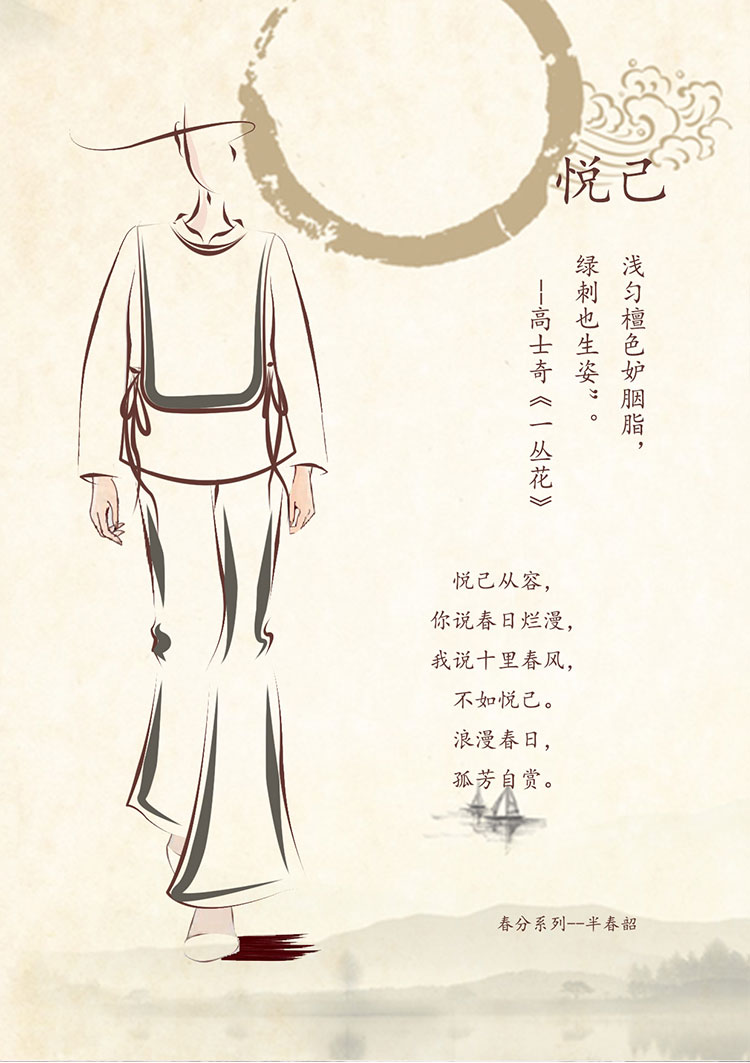 悦己
浅匀檀色妒胭脂，
绿刺也生姿”。
--高士奇《一丛花》
悦己从容，
你说春日烂漫，
我说十里春风，
不如悦己。
浪漫春日，
孤芳自赏。
春分系列--半春韶